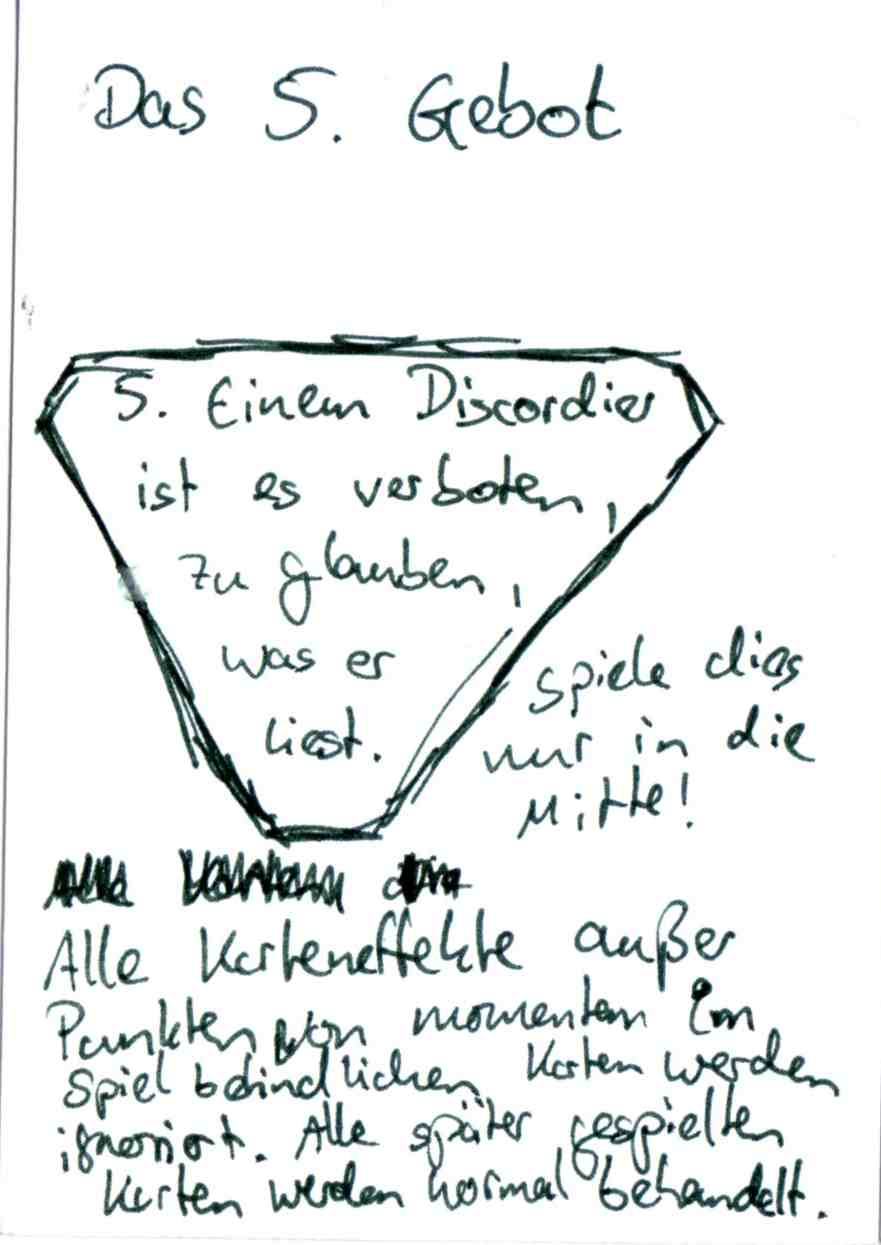 Das 5. Gebot
5. Einem Discordier
ist es verboten,
zu glauben,
was er
liest.
spiele dies
nur in die
Mitte!
Alle Karteneffekte außer
Punkten von momentan im
Spiel befindlichen Karten werden
ignoriert. Alle später gespielten
Karten werden normal behandelt.